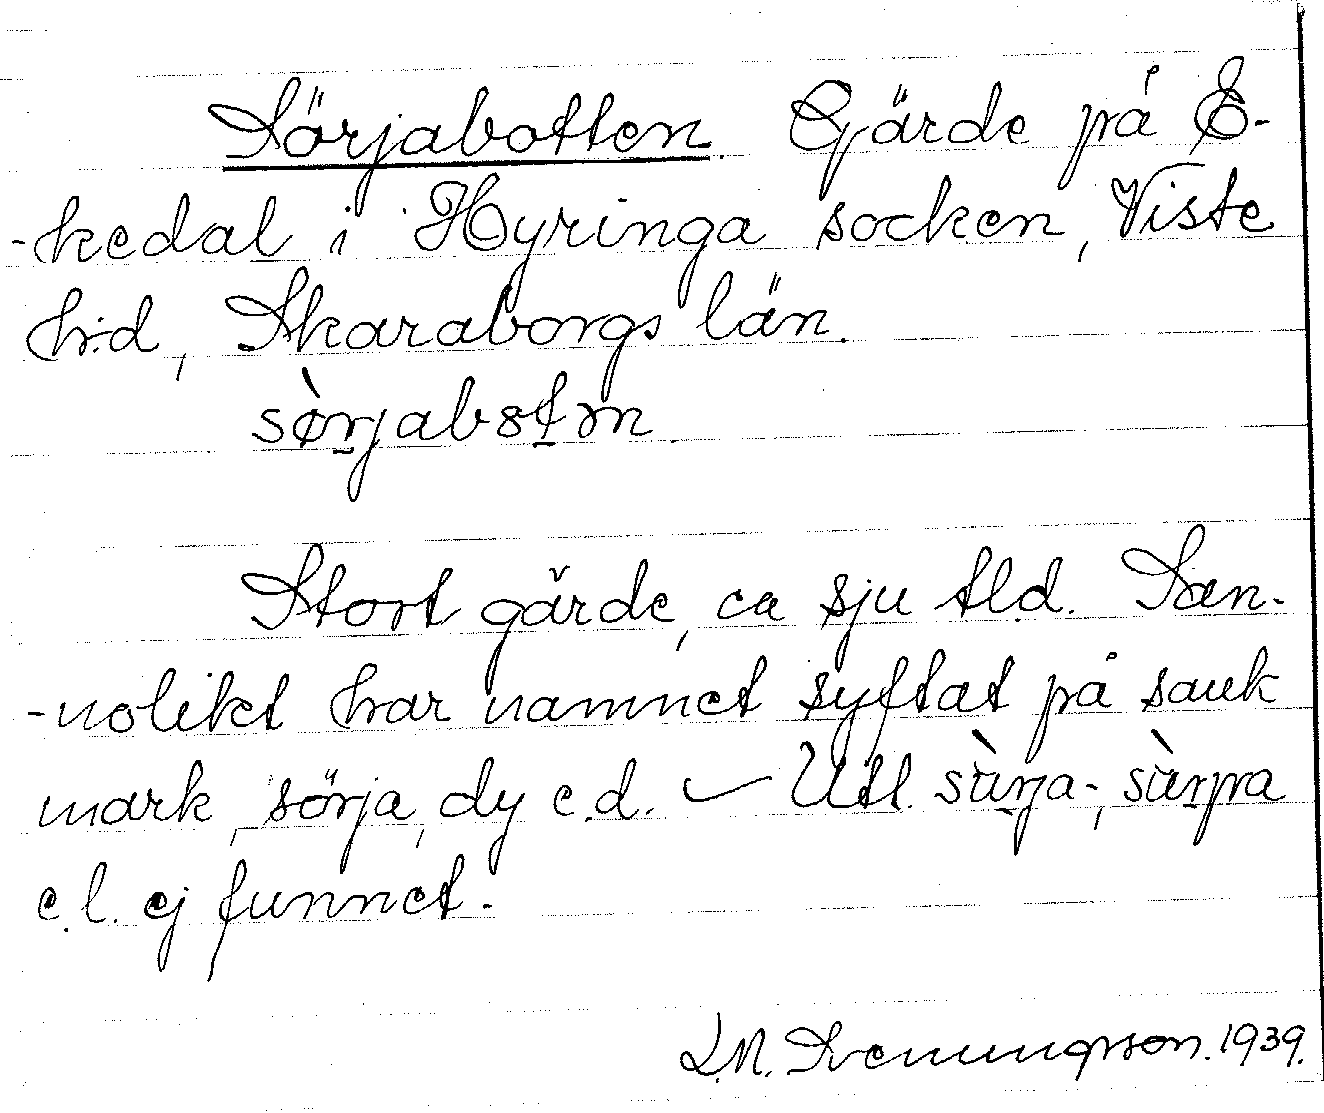 Sörjabotten. Gärde på E-
-kedal i Hyringa socken, Viste
h:d, Skaraborgs län.
sørjabotn
Stort gärde, ca sju tld. San-
-nolikt har namnet syftat på sank
mark, sörja, dy e.d. – Utl.
e.l. ej funnet.
1939.